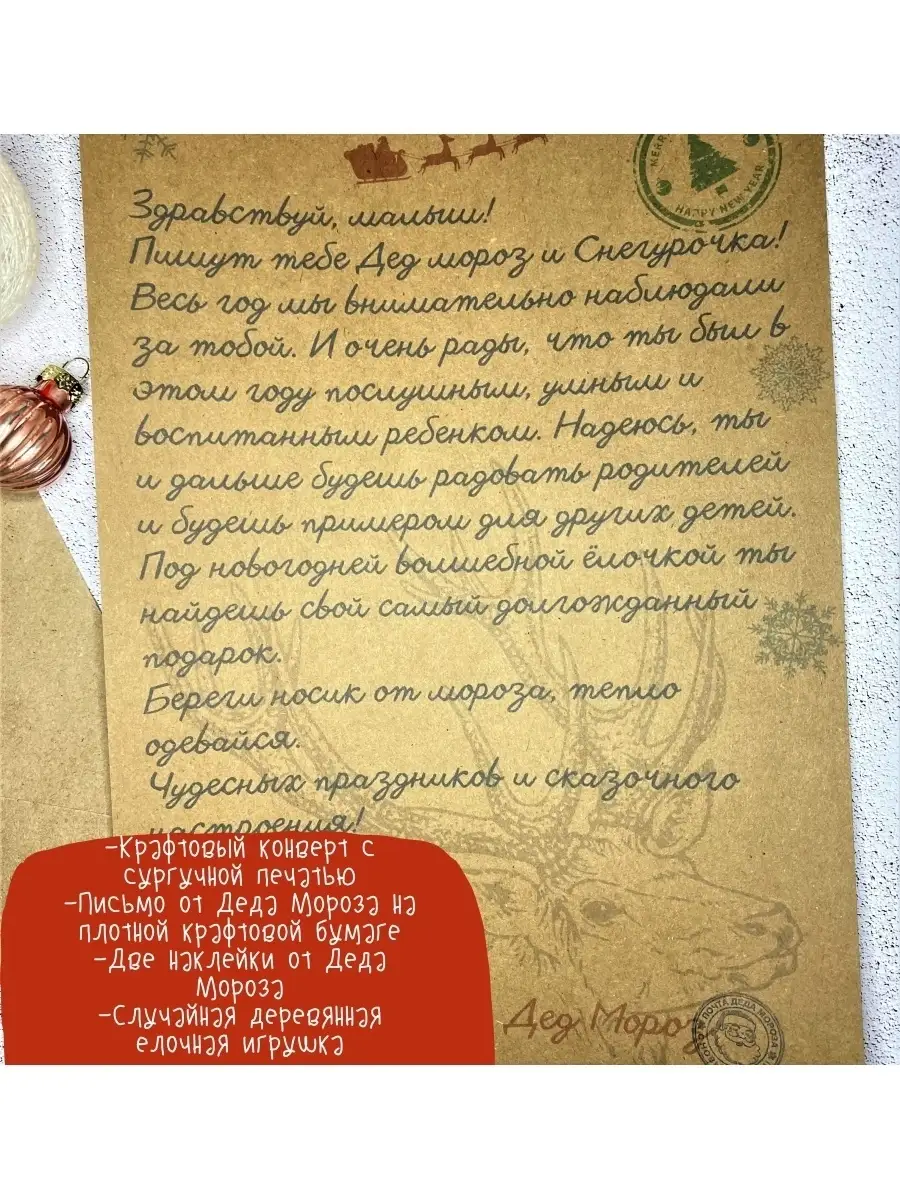 MERRY
HAPPY NEW YEAR
Здравствуй, малыш!
Пишут тебе Дед мороз и Снегурочка!
Весь год мы внимательно наблюдали
за тобой. И очень рады, что ты был в
этом году послушным, умным и
воспитанным ребенком. Надеюсь, ты
и дальше будешь радовать родителей
и будешь примером для других детей.
Под новогодней волшебной ёлочкой ты
найдешь свой самый долгожданный
подарок.
Береги носик от мороза, тепло
одевайся.
Чудесных праздников и сказочного
настроения!
-Крафтовый конверт с
сургучной печатью
-Письмо от Деда Мороза на
плотной крафтовой бумаге
-Две наклейки от Деда
Мороза
-Случайная деревянная
елочная игрушка
Дед Мороз
ПОЧТА ДЕДА МОРОЗА